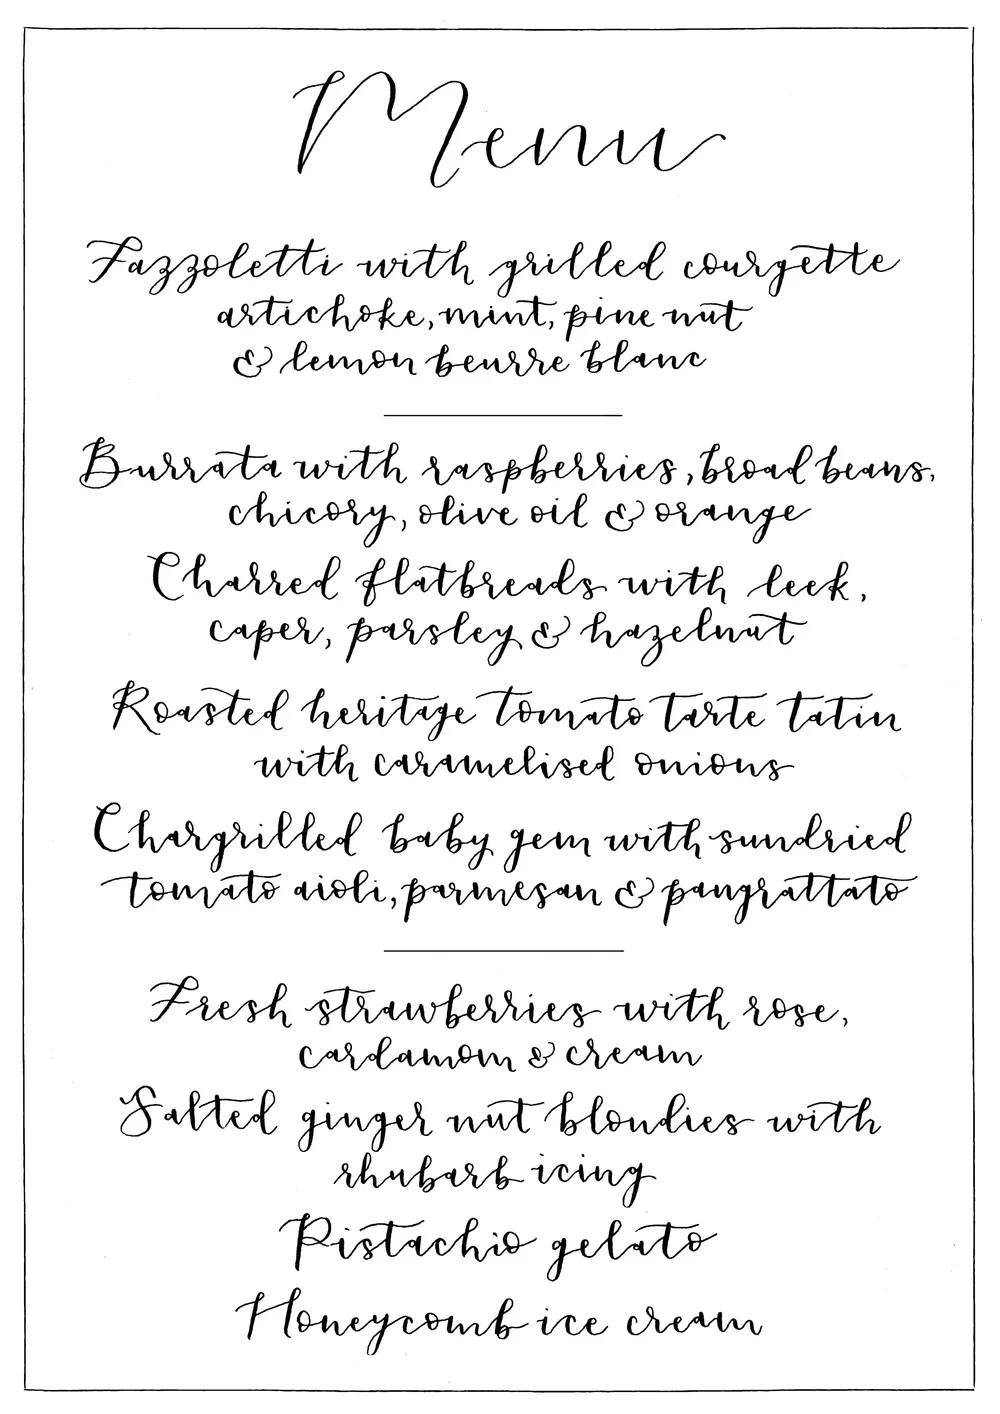 Menu
Fazzoletti with grilled courgette
artichoke, mint, pine nut
& lemon beurre blanc
Burrata with raspberries, broad beans,
chicory, olive oil & orange
Charred flatbreads with leek,
caper, parsley & hazelnut
Roasted heritage tomato tarte tatin
with caramelised onions
Chargrilled baby gem with sundried
tomato aioli, parmesan & pangrattato
Fresh strawberries with rose,
cardamom & cream
Salted ginger nut blondies with
rhubarb icing
Pistachio gelato
Honeycomb ice cream